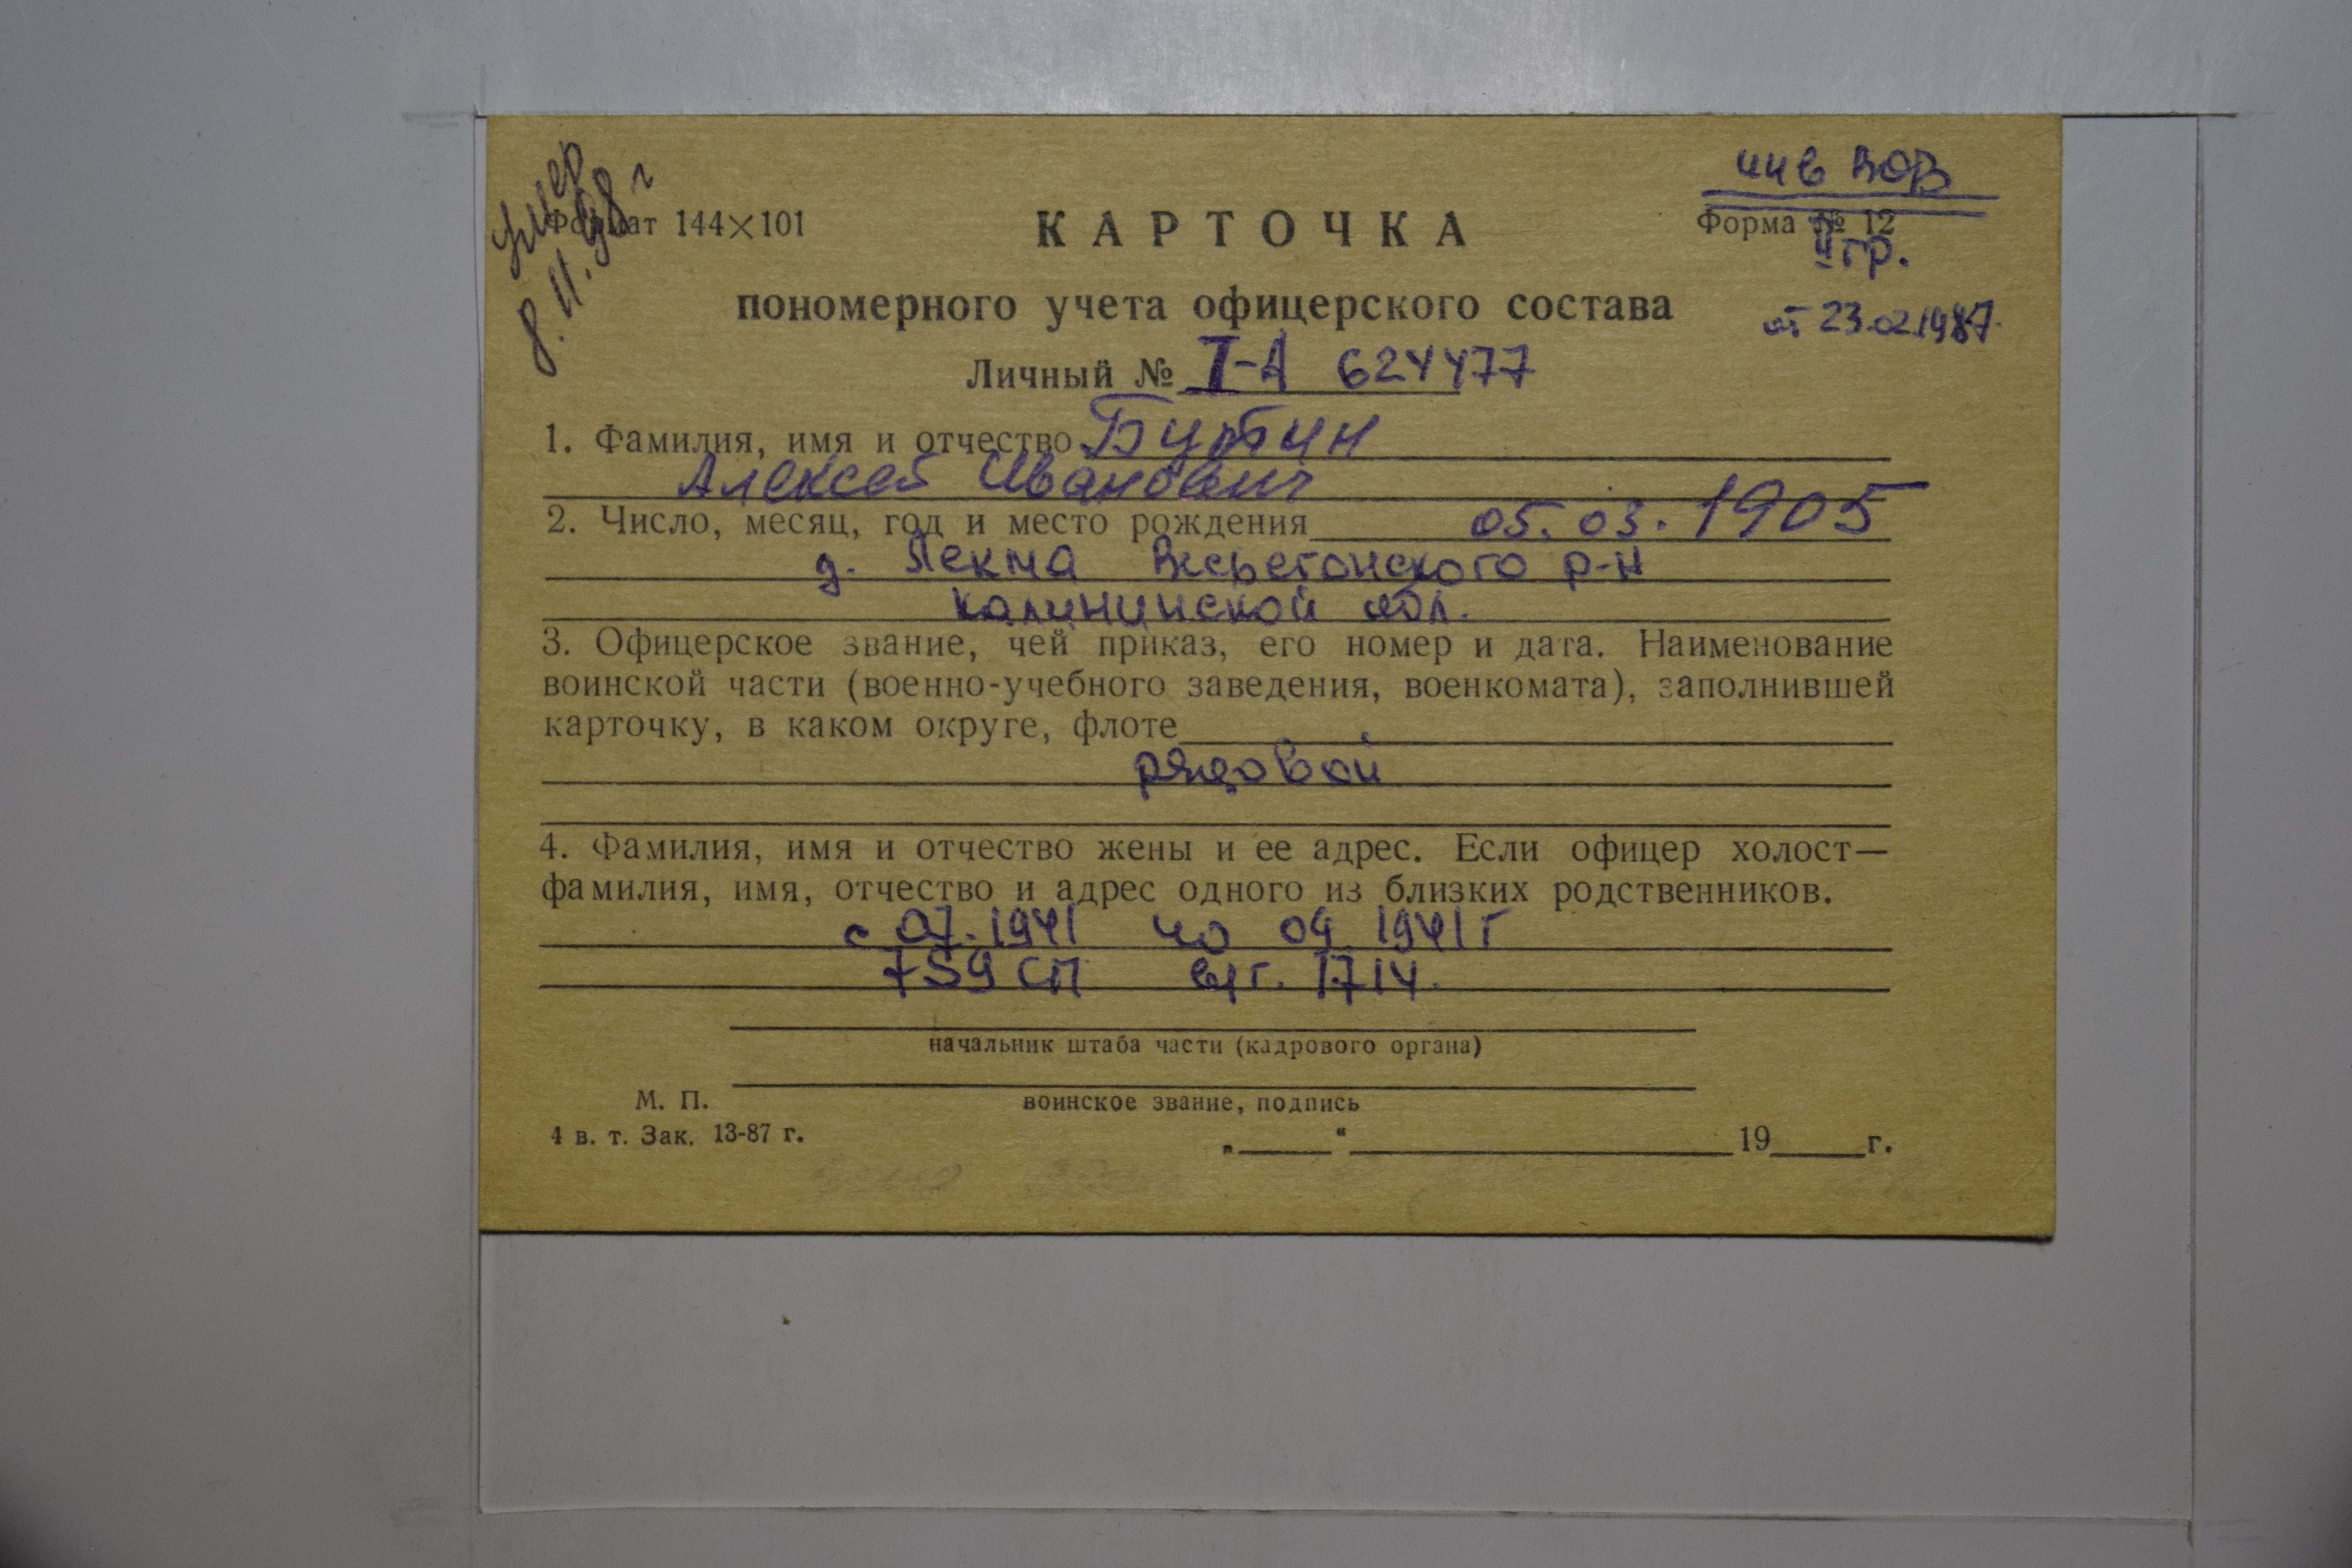 умер
8.11.98 г
инв ВОВ
Формат 144×101
КАРТОЧКА
Форма № 12
II гр.
пономерного учета офицерского состава
от 23.02.1987.
Личный № I-А 624477
1. Фамилия, имя и отчество Бутин
Алексей Иванович
2. Число, месяц, год и место рождения 05.03.1905
д. Весьегонского р-н
Калининской обл.
3. Офицерское звание, чей приказ, его номер и дата. Наименование
воинской части (военно-учебного заведения, военкомата), заполнившей
карточку, в каком округе, флоте
рядовой
4. Фамилия, имя и отчество жены и ее адрес. Если офицер холост—
фамилия, имя, отчество и адрес одного из близких родственников.
с 07.1941 по 09 1941 г
759 СП 1714.
начальник штаба части (кадрового органа)
М. П.
воинское звание, подпись
4 в. т. Зак. 13-87 г.
„ “ 19 г.